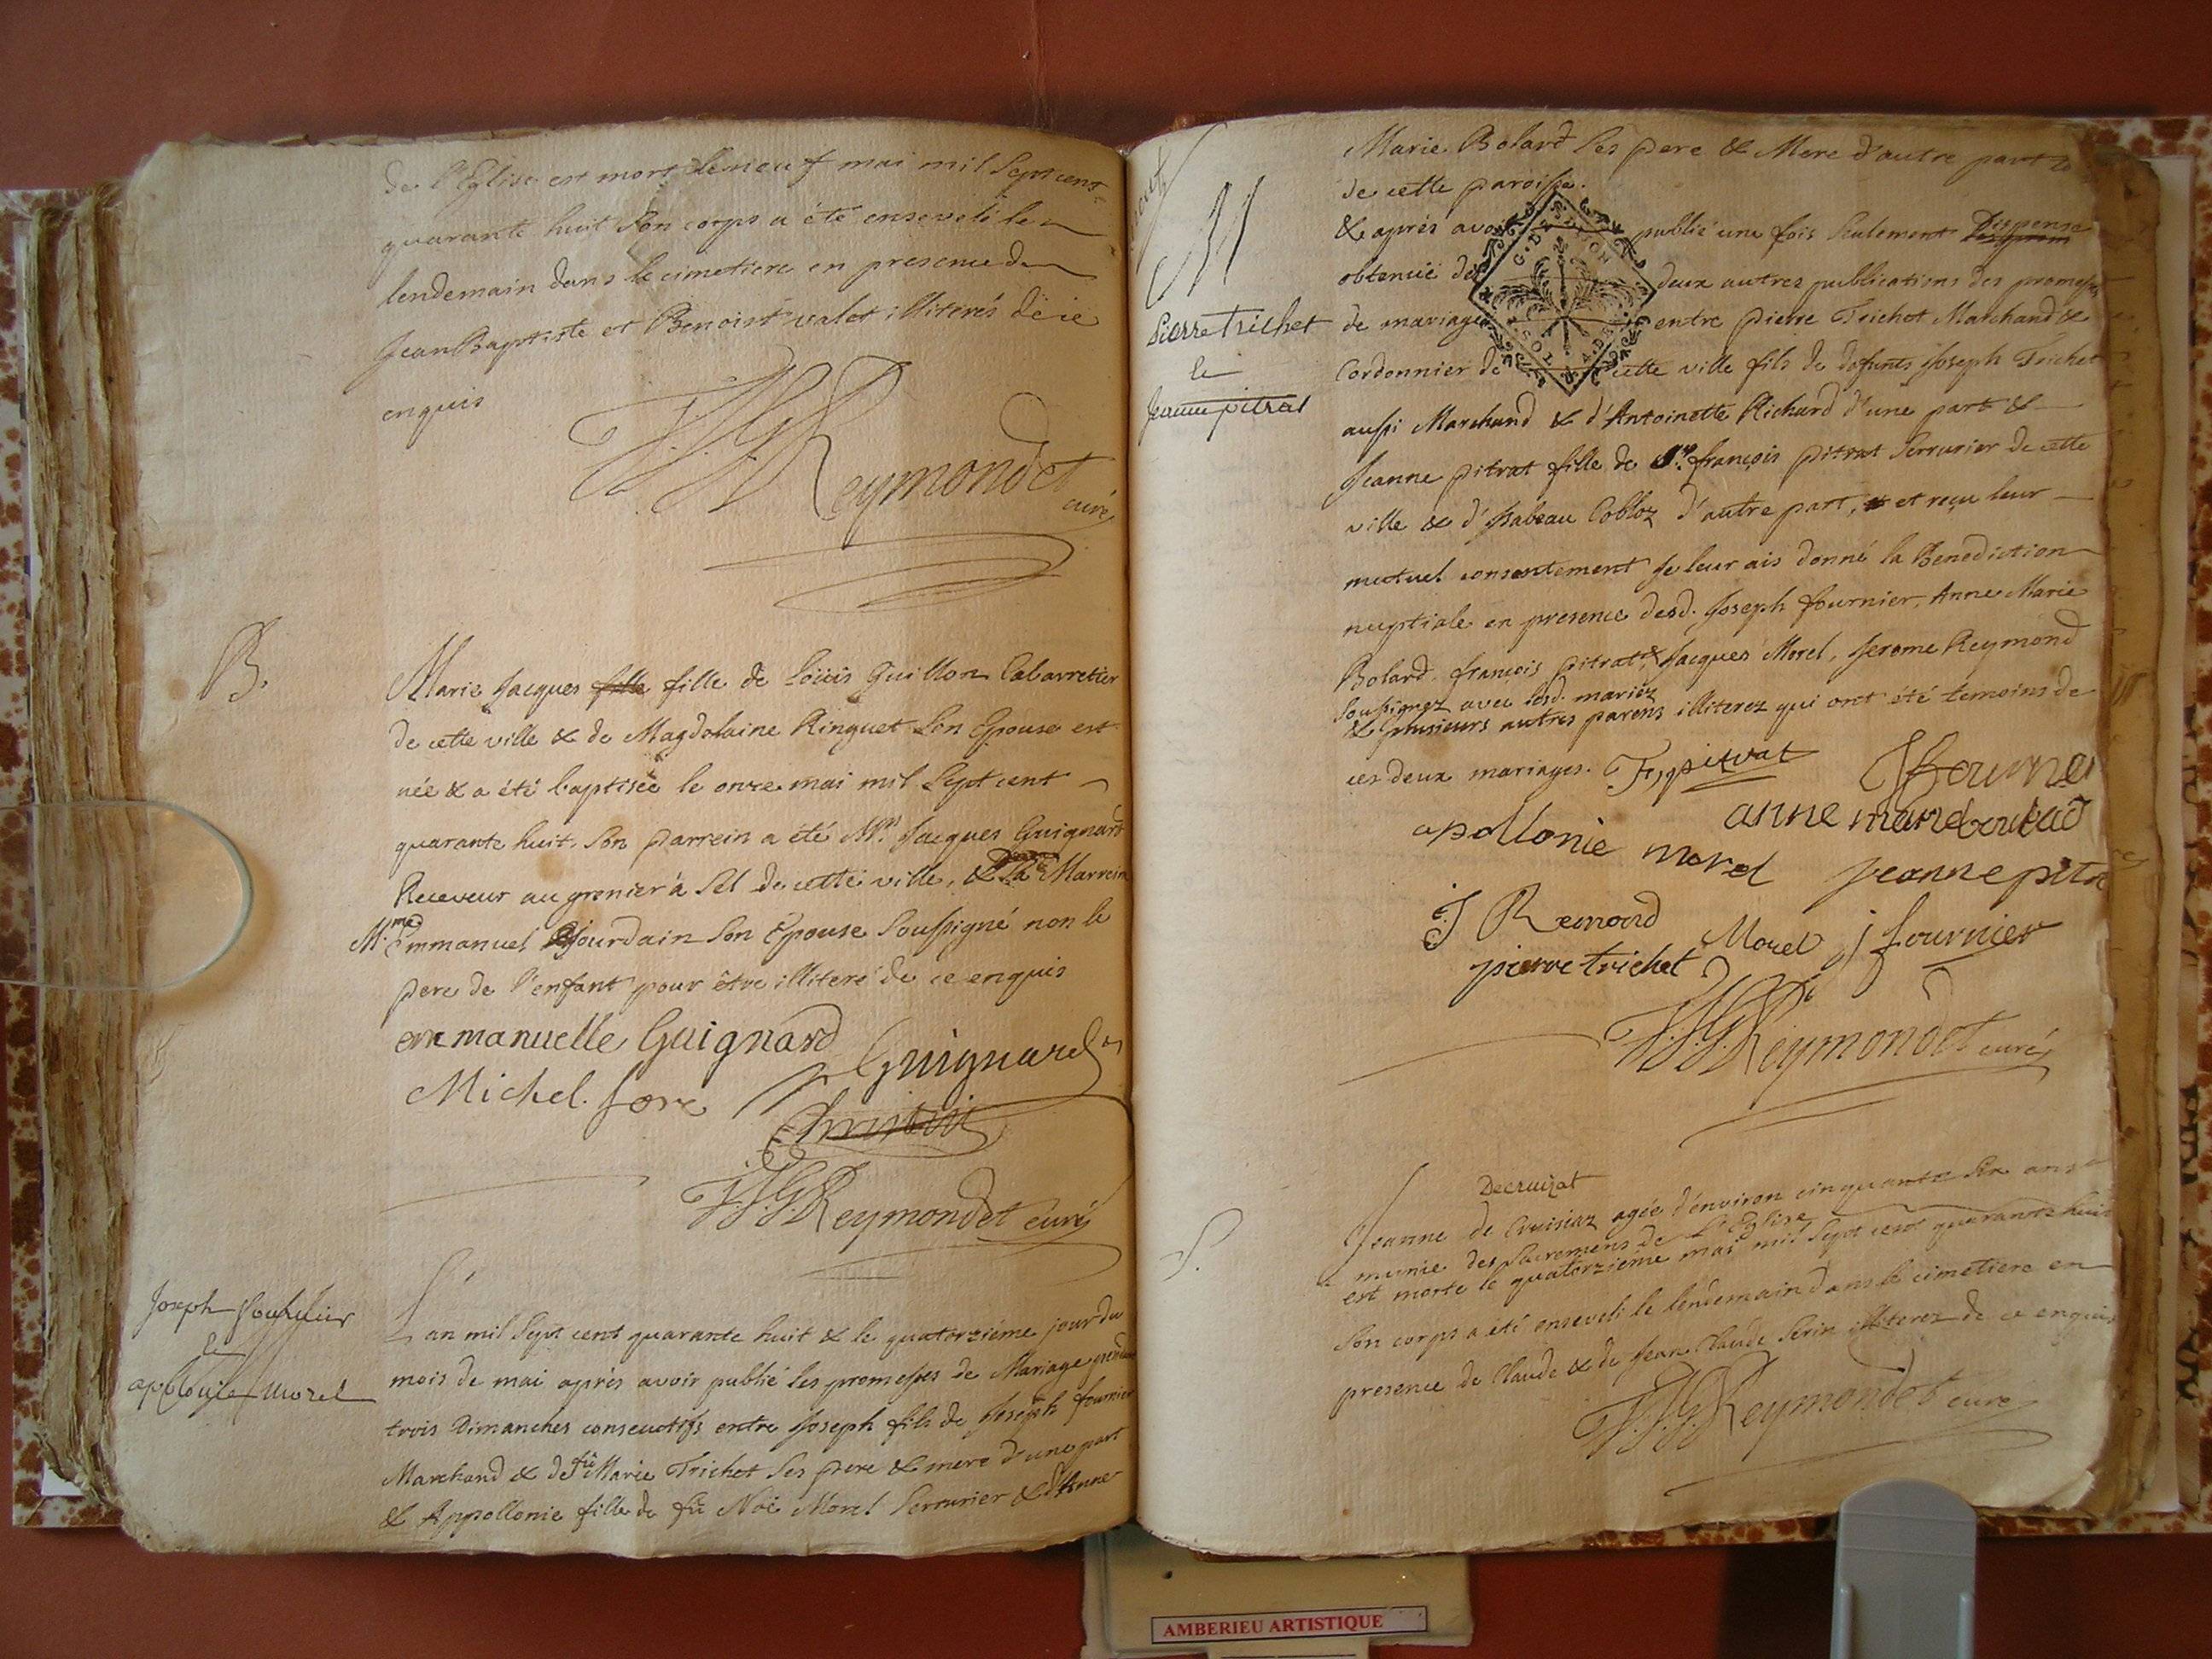 de l'Eglise est mort le neuf mai mil sept cent
quarante huit son corps a été enseveli le
lendemain dans le cimetiere en presence de
Jean Baptiste et Benoist valet illiterés de ce
enquis
Reymondet
curé
B.
Marie Jacques fille fille de Loüis Guillon Cabarretier
de cette ville & de Magdelaine Ringuet son Epouse est
née & a été baptisée le onze mai mil sept cent
quarante huit. son parrein a été Mr. Jacques Guignard
Receveur au grenier à sel de cette ville, & la Marreine
M. me Emmanuel Jourdain son Epouse soussigné non le
pere de l'enfant pour être illiteré de ce enquis
emmanuelle Guignard
Guignard
Michel
J.J.G. Reymondet curé
Joseph
&
Morel
L'an mil sept cent quarante huit & le quatorziéme jour du
mois de mai après avoir publié les promesses de Mariage pendant
trois Dimanches consecutifs entre Joseph fils de Joseph fournier
Marchand & de fû Marie Trichet ses pere & mere d'une part
& Appollonie fille de fû Noé Morel serrurier & d'Anne
Marie Bolard ses pere & Mere d'autre part
de cette paroisse.
M
Pierre Trichet
&
Jeanne pitrat
& après avoir publié une fois seulement Dispense
obtenüe des deux autres publications des promesses
de mariage entre pierre Trichet Marchand &
Cordonnier de cette ville fils de defunts Joseph Trichet
aussi Marchand & d'Antoinette Richard d'une part &
Jeanne pitrat fille de Sr. françois pitrat serrurier de cette
ville & d'Isabeau Cobloz d'autre part, et reçu leur
mutuel consentement Je leur ais donné la Benediction
nuptiale en presence desd. Joseph fournier, Anne Marie
Bolard, françois pitrat, & Jacques Morel, Jerome Reymond
soussignez avec lesd. mariez
& plusieurs autres parens illiterez qui ont été temoins de
ces deux mariages. F, pitrat
anne marie
apollonie morel Jeanne pitra
J Remond Morel j fournier
pierre trichet
J.J.G. Reymondet curé
S.
Decruizat
Jeanne de Cruisiaz agée d'environ cinquante six ans
munie des sacremens de l'Eglise
est morte le quatorziéme mai mil sept cent quarante huit
son corps a été enseveli le lendemain dans le cimetiere en
presence de Claude & de Jean Claude Serin illiterez de ce enquis
J.J.G. Reymondet curé
AMBERIEU ARTISTIQUE